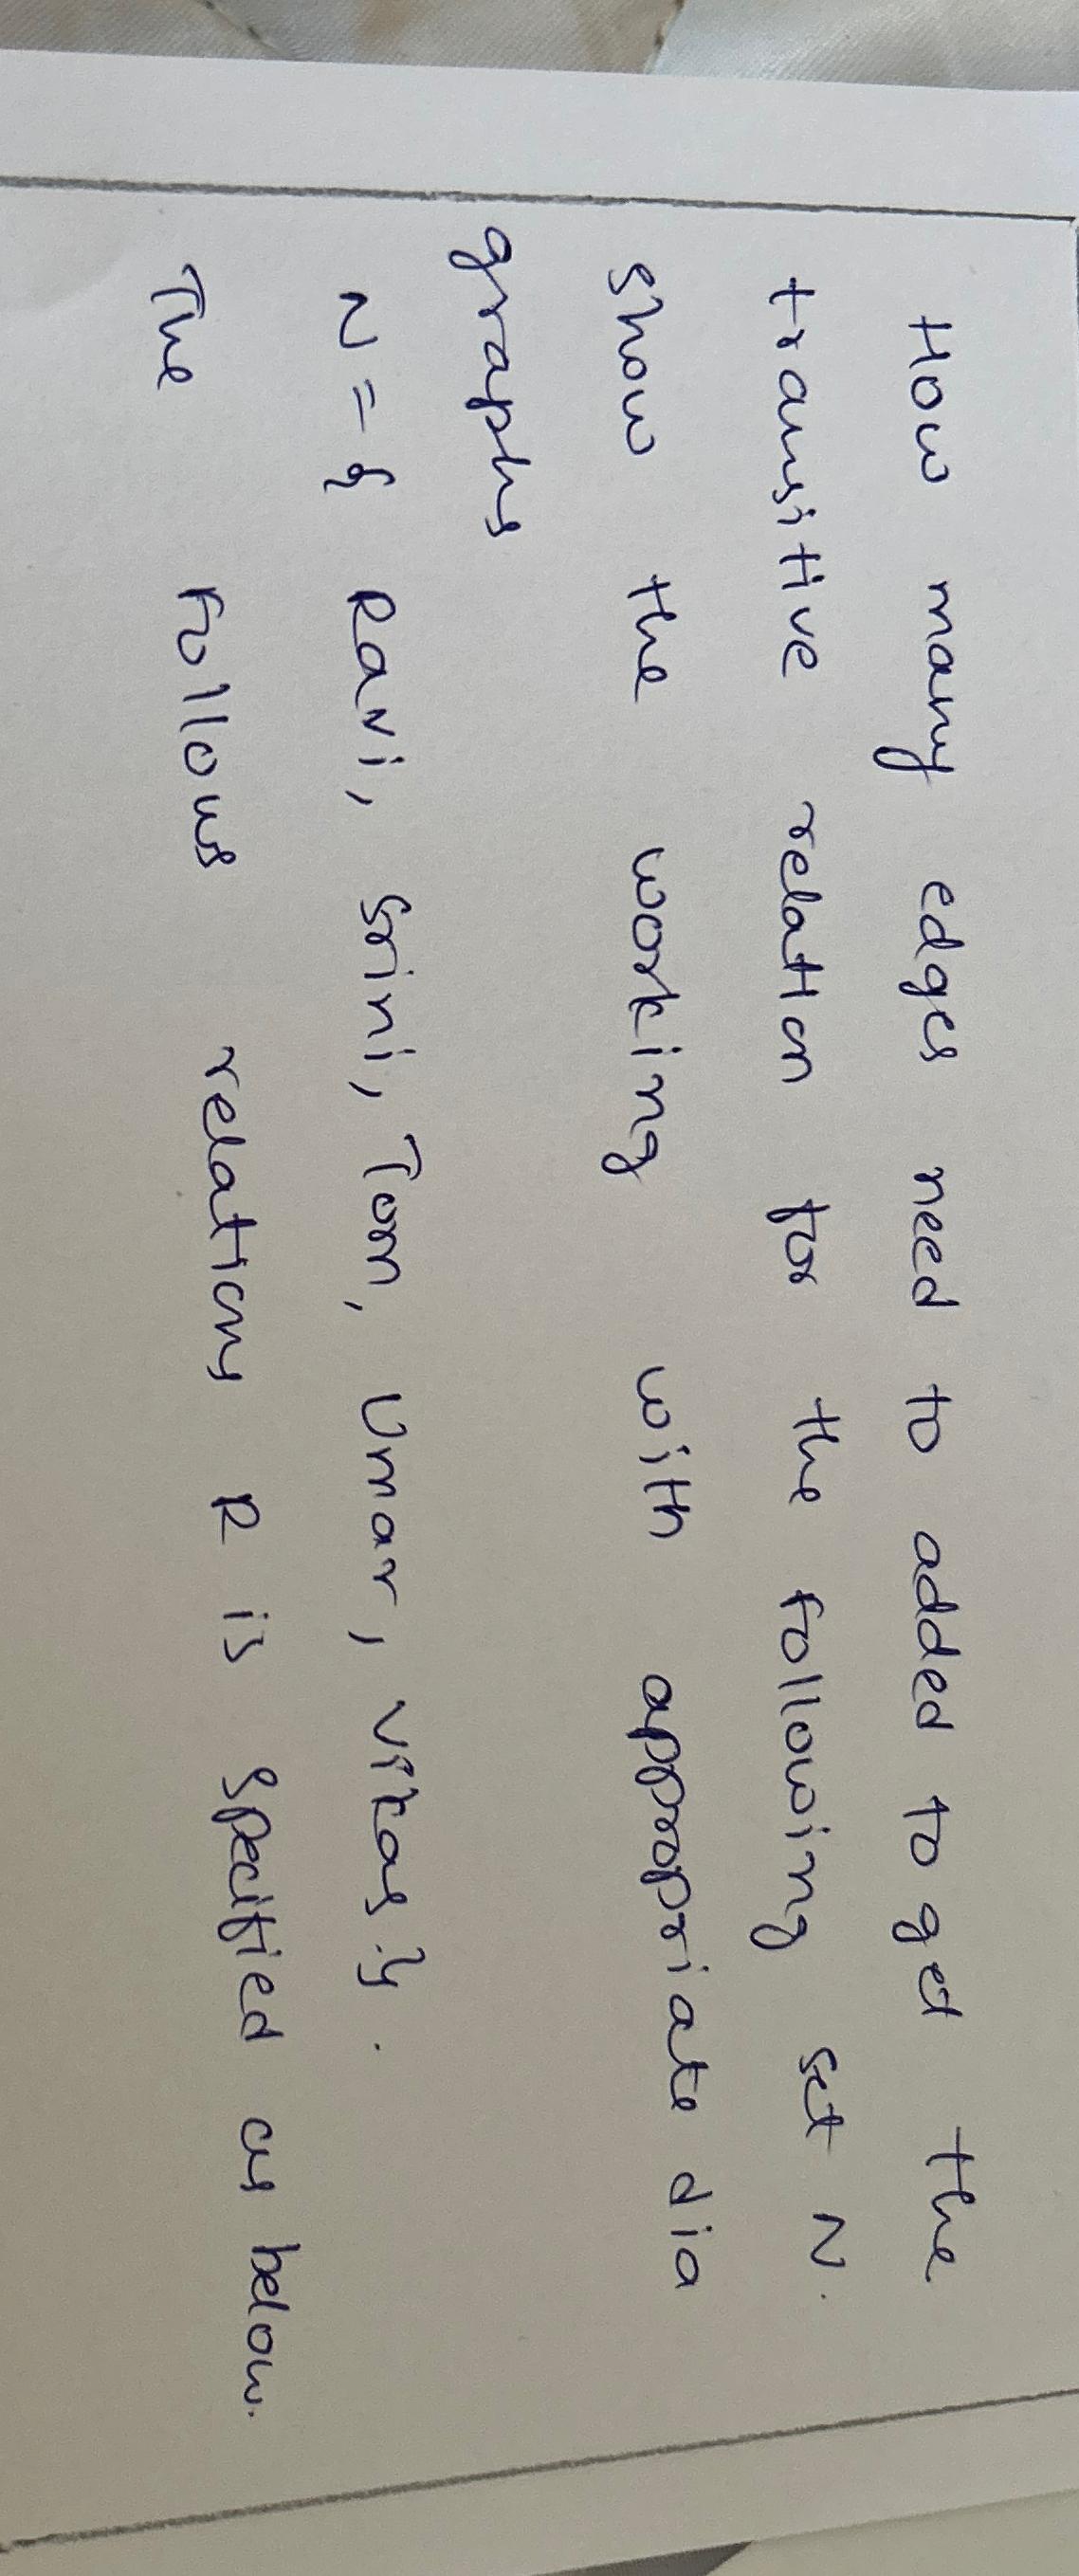 How many edges need to added to get the
transitive relation for the following set N.
show the working with appropriate dia
graphs
N = { Ravi, Srini, Tom, Umar, Vikas }.
The Follows relations R is specified as below.